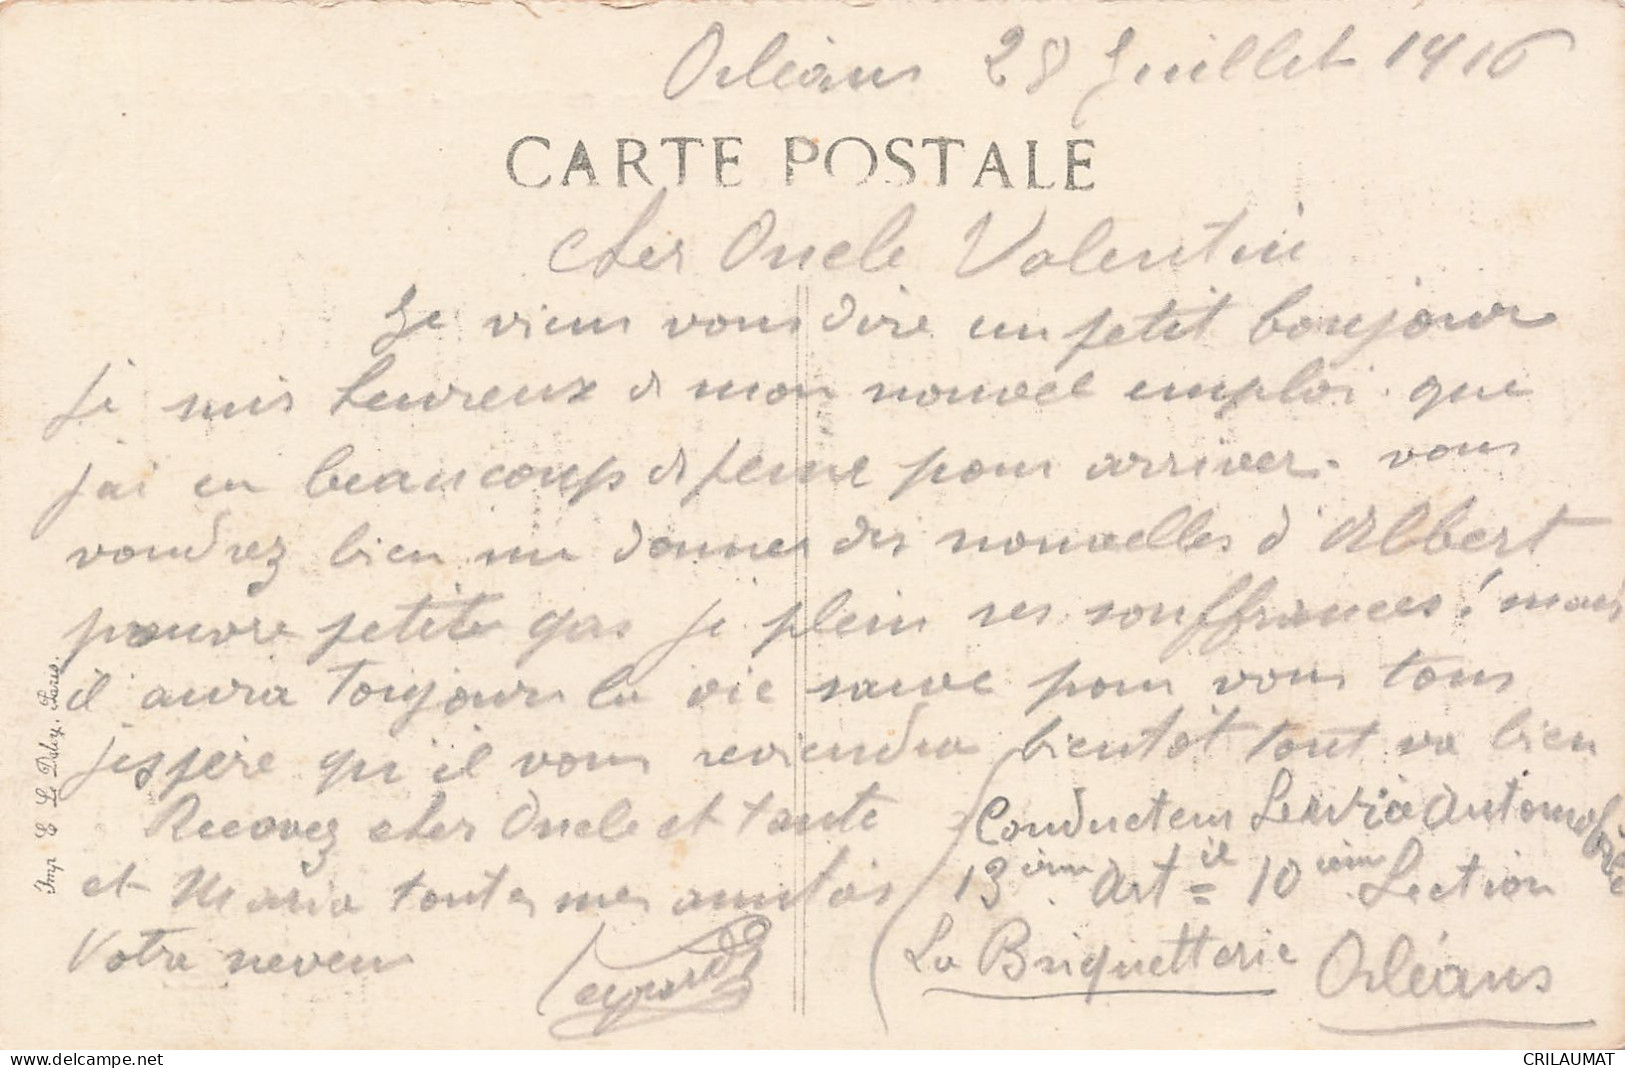 Orléans 28 Juillet 1916
CARTE POSTALE
Cher Oncle Valentin
Je viens vous dire un petit bonjour
je suis heureux d mon nouvel emploi que
j'ai eu beaucoup d peine pour arriver. vous
voudrez bien me donner des nouvelles d'Albert
pauvre petite gas je plein ses souffrances! mais
il aura toujours la vie sauve pour vous tous
j'espère qu'il vous reviendra bientôt tout va bien
Recevez cher Oncle et tante
et Maria toutes mes amitiés
Votre neveu
Conducteur Servia Automobile
13 ième Art ie 10 ième Section
La Briquetterie Orléans
Imp. E. Le Deley, Paris.
CRILAUMAT